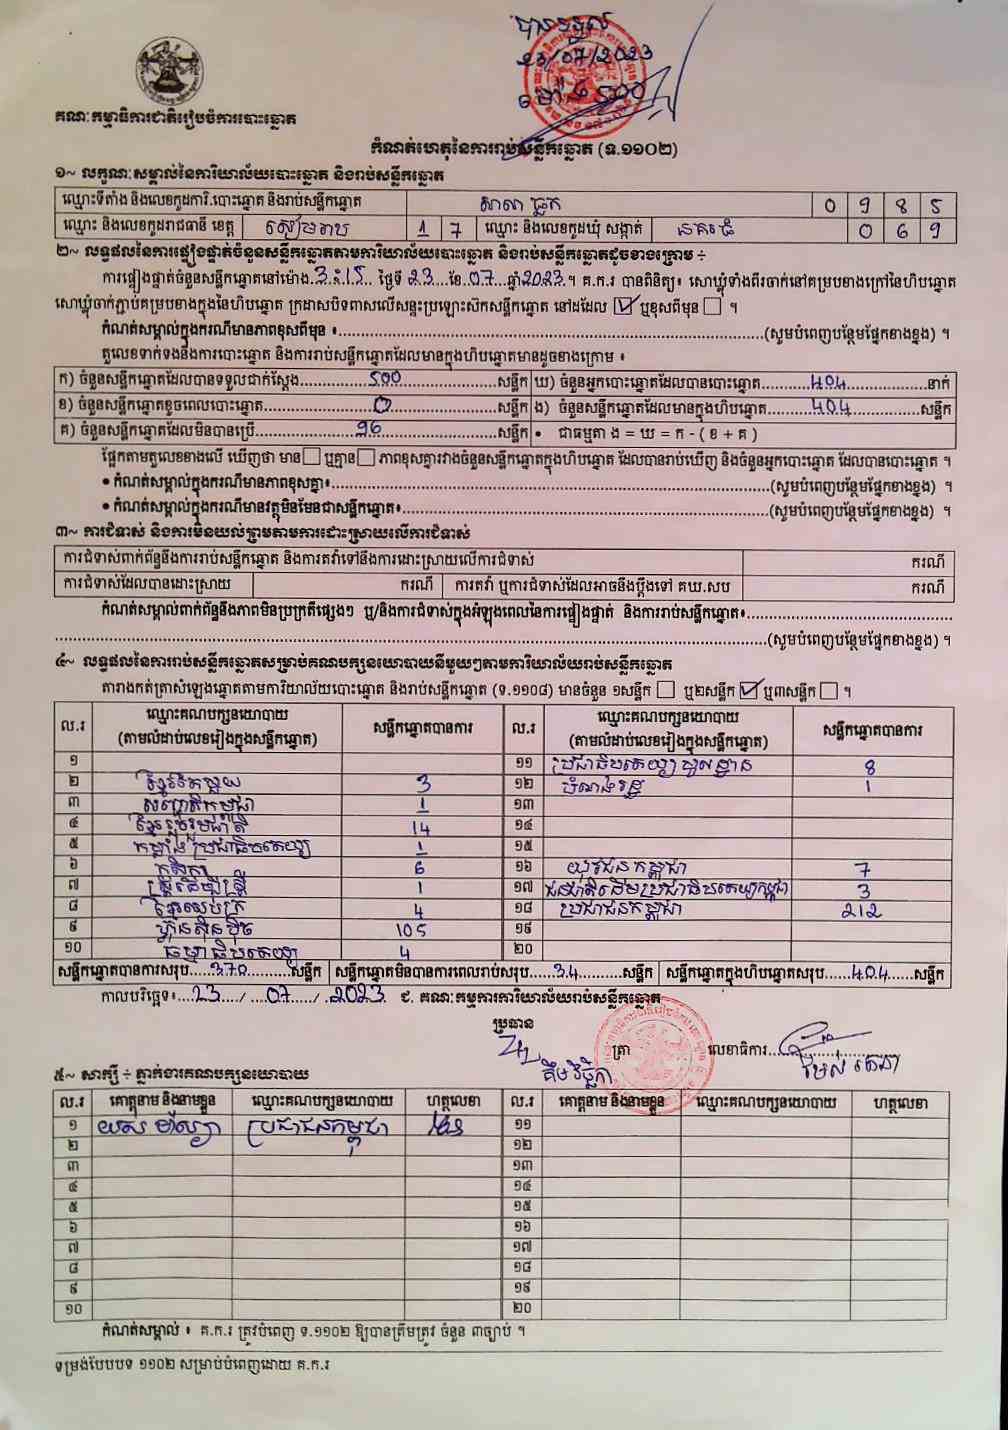 បានទទួល
23/07/2023
គណៈកម្មាធិការជាតិរៀបចំការបោះឆ្នោត
កំណត់ហេតុនៃការរាប់សន្លឹកឆ្នោត (ទ.១១០២)
១~ លក្ខណៈសម្គាល់នៃការិយាល័យបោះឆ្នោត និងរាប់សន្លឹកឆ្នោត
ឈ្មោះទីតាំង និងលេខកូដការិ.បោះឆ្នោត និងរាប់សន្លឹកឆ្នោត សាលា ធ្លក 0 9 8 5
ឈ្មោះ និងលេខកូដរាជធានី ខេត្ត សៀមរាប 1 7 ឈ្មោះ និងលេខកូដឃុំ សង្កាត់ នគរធំ 0 6 9
២~ លទ្ធផលនៃការផ្ទៀងផ្ទាត់ចំនួនសន្លឹកឆ្នោតតាមការិយាល័យបោះឆ្នោត និងរាប់សន្លឹកឆ្នោតដូចខាងក្រោម ÷
ការផ្ទៀងផ្ទាត់ចំនួនសន្លឹកឆ្នោតនៅម៉ោង 3:15 ថ្ងៃទី 23 ខែ 07 ឆ្នាំ 2023 ។ គ.ក.រ បានពិនិត្យ៖ សោឃ្លុំទាំងពីរចាក់នៅគម្របខាងក្រៅនៃហិបឆ្នោត
សោឃ្លុំចាក់ភ្ជាប់គម្របខាងក្នុងនៃហិបឆ្នោត ក្រដាសបិទពាសលើសន្ទះប្រឡោះសិកសន្លឹកឆ្នោត នៅដដែល ☑ ឬខុសពីមុន ☐ ។
កំណត់សម្គាល់ក្នុងករណីមានភាពខុសពីមុន ៖ (សូមបំពេញបន្ថែមផ្នែកខាងខ្នង) ។
តួលេខទាក់ទងនឹងការបោះឆ្នោត និងការរាប់សន្លឹកឆ្នោតដែលមានក្នុងហិបឆ្នោតមានដូចខាងក្រោម ៖
ក) ចំនួនសន្លឹកឆ្នោតដែលបានទទួលជាក់ស្តែង 500 សន្លឹក ឃ) ចំនួនអ្នកបោះឆ្នោតដែលបានបោះឆ្នោត 404 នាក់
ខ) ចំនួនសន្លឹកឆ្នោតខូចពេលបោះឆ្នោត 0 សន្លឹក ង) ចំនួនសន្លឹកឆ្នោតដែលមានក្នុងហិបឆ្នោត 404 សន្លឹក
គ) ចំនួនសន្លឹកឆ្នោតដែលមិនបានប្រើ 96 សន្លឹក • ជាធម្មតា ង = ឃ = ក - ( ខ + គ )
ផ្អែកតាមតួលេខខាងលើ ឃើញថា មាន ☐ ឬគ្មាន ☐ ភាពខុសគ្នារវាងចំនួនសន្លឹកឆ្នោតក្នុងហិបឆ្នោត ដែលបានរាប់ឃើញ និងចំនួនអ្នកបោះឆ្នោត ដែលបានបោះឆ្នោត ។
• កំណត់សម្គាល់ក្នុងករណីមានភាពខុសគ្នា៖ (សូមបំពេញបន្ថែមផ្នែកខាងខ្នង) ។
• កំណត់សម្គាល់ក្នុងករណីមានវត្ថុមិនមែនជាសន្លឹកឆ្នោត៖ (សូមបំពេញបន្ថែមផ្នែកខាងខ្នង) ។
៣~ ការជំទាស់ និងការមិនយល់ព្រមតាមការដោះស្រាយលើការជំទាស់
ការជំទាស់ពាក់ព័ន្ធនឹងការរាប់សន្លឹកឆ្នោត និងការតវ៉ាទៅនឹងការដោះស្រាយលើការជំទាស់ ករណី
ការជំទាស់ដែលបានដោះស្រាយ ករណី ការតវ៉ា ឬការជំទាស់ដែលអាចនឹងប្តឹងទៅ គឃ.សប ករណី
កំណត់សម្គាល់ពាក់ព័ន្ធនឹងភាពមិនប្រក្រតីផ្សេងៗ ឬ/និងការជំទាស់ក្នុងអំឡុងពេលនៃការផ្ទៀងផ្ទាត់ និងការរាប់សន្លឹកឆ្នោត៖
(សូមបំពេញបន្ថែមផ្នែកខាងខ្នង) ។
៤~ លទ្ធផលនៃការរាប់សន្លឹកឆ្នោតសម្រាប់គណបក្សនយោបាយនីមួយៗតាមការិយាល័យរាប់សន្លឹកឆ្នោត
តារាងកត់ត្រាសំឡេងឆ្នោតតាមការិយាល័យបោះឆ្នោត និងរាប់សន្លឹកឆ្នោត (ទ.១១០៨) មានចំនួន ១សន្លឹក ☐ ឬ២សន្លឹក ☑ ឬ៣សន្លឹក ☐ ។
ល.រ ឈ្មោះគណបក្សនយោបាយ (តាមលំដាប់លេខរៀងក្នុងសន្លឹកឆ្នោត) សន្លឹកឆ្នោតបានការ ល.រ ឈ្មោះគណបក្សនយោបាយ (តាមលំដាប់លេខរៀងក្នុងសន្លឹកឆ្នោត) សន្លឹកឆ្នោតបានការ
១ ១១ ប្រជាធិបតេយ្យមូលដ្ឋាន 8
២ ខ្មែរតែមួយ 3 ១២ បំណងរដ្ឋ 1
៣ សញ្ជាតិកម្ពុជា 1 ១៣
៤ ខ្មែររួបរួមជាតិ 14 ១៤
៥ កម្លាំងប្រជាធិបតេយ្យ 1 ១៥
៦ កសិករ 6 ១៦ យុវជនកម្ពុជា 7
៧ ស្ត្រីដើម្បីស្ត្រី 1 ១៧ ជនជាតិដើមប្រជាធិបតេយ្យកម្ពុជា 3
៨ ខ្មែរឈប់ក្រ 4 ១៨ ប្រជាជនកម្ពុជា 212
៩ ហ៊្វុនស៊ិនប៉ិច 105 ១៩
១០ ធម្មាធិបតេយ្យ 4 ២០
សន្លឹកឆ្នោតបានការសរុប 370 សន្លឹក សន្លឹកឆ្នោតមិនបានការពេលរាប់សរុប 34 សន្លឹក សន្លឹកឆ្នោតក្នុងហិបឆ្នោតសរុប 404 សន្លឹក
កាលបរិច្ឆេទ៖ 23 / 07 / 2023 ជ. គណៈកម្មការការិយាល័យរាប់សន្លឹកឆ្នោត
ប្រធាន ត្រា លេខាធិការ
៥~ សាក្សី ÷ ភ្នាក់ងារគណបក្សនយោបាយ
ល.រ គោត្តនាម និងនាមខ្លួន ឈ្មោះគណបក្សនយោបាយ ហត្ថលេខា ល.រ គោត្តនាម និងនាមខ្លួន ឈ្មោះគណបក្សនយោបាយ ហត្ថលេខា
១ ប្រជាជនកម្ពុជា ១១
២ ១២
៣ ១៣
៤ ១៤
៥ ១៥
៦ ១៦
៧ ១៧
៨ ១៨
៩ ១៩
១០ ២០
កំណត់សម្គាល់ ៖ គ.ក.រ ត្រូវបំពេញ ទ.១១០២ ឱ្យបានត្រឹមត្រូវ ចំនួន ៣ច្បាប់ ។
ទម្រង់បែបបទ ១១០២ សម្រាប់បំពេញដោយ គ.ក.រ